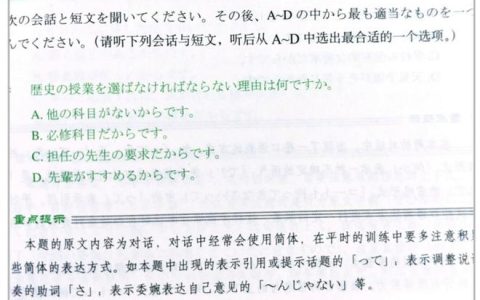 次の会話と短文を聞いてください。その後、A~Dの中から最も適当なものを一つ
んでください。（请听下列会话与短文，听后从 A~D 中选出最合适的一个选项。）
歴史の授業を選ばなければならない理由は何ですか。
A. 他の科目がないからです。
B. 必修科目だからです。
C. 担任の先生の要求だからです。
D. 先輩がすすめるからです。
重点提示
本题的原文内容为对话，对话中经常会使用简体，在平时的训练中要多注意积
些简体的表达方式。如本题中出现的表示引用或提示话题的「って」，表示调整说
奏的助词「さ」，表示委婉表达自己意见的「～んじゃない」等。